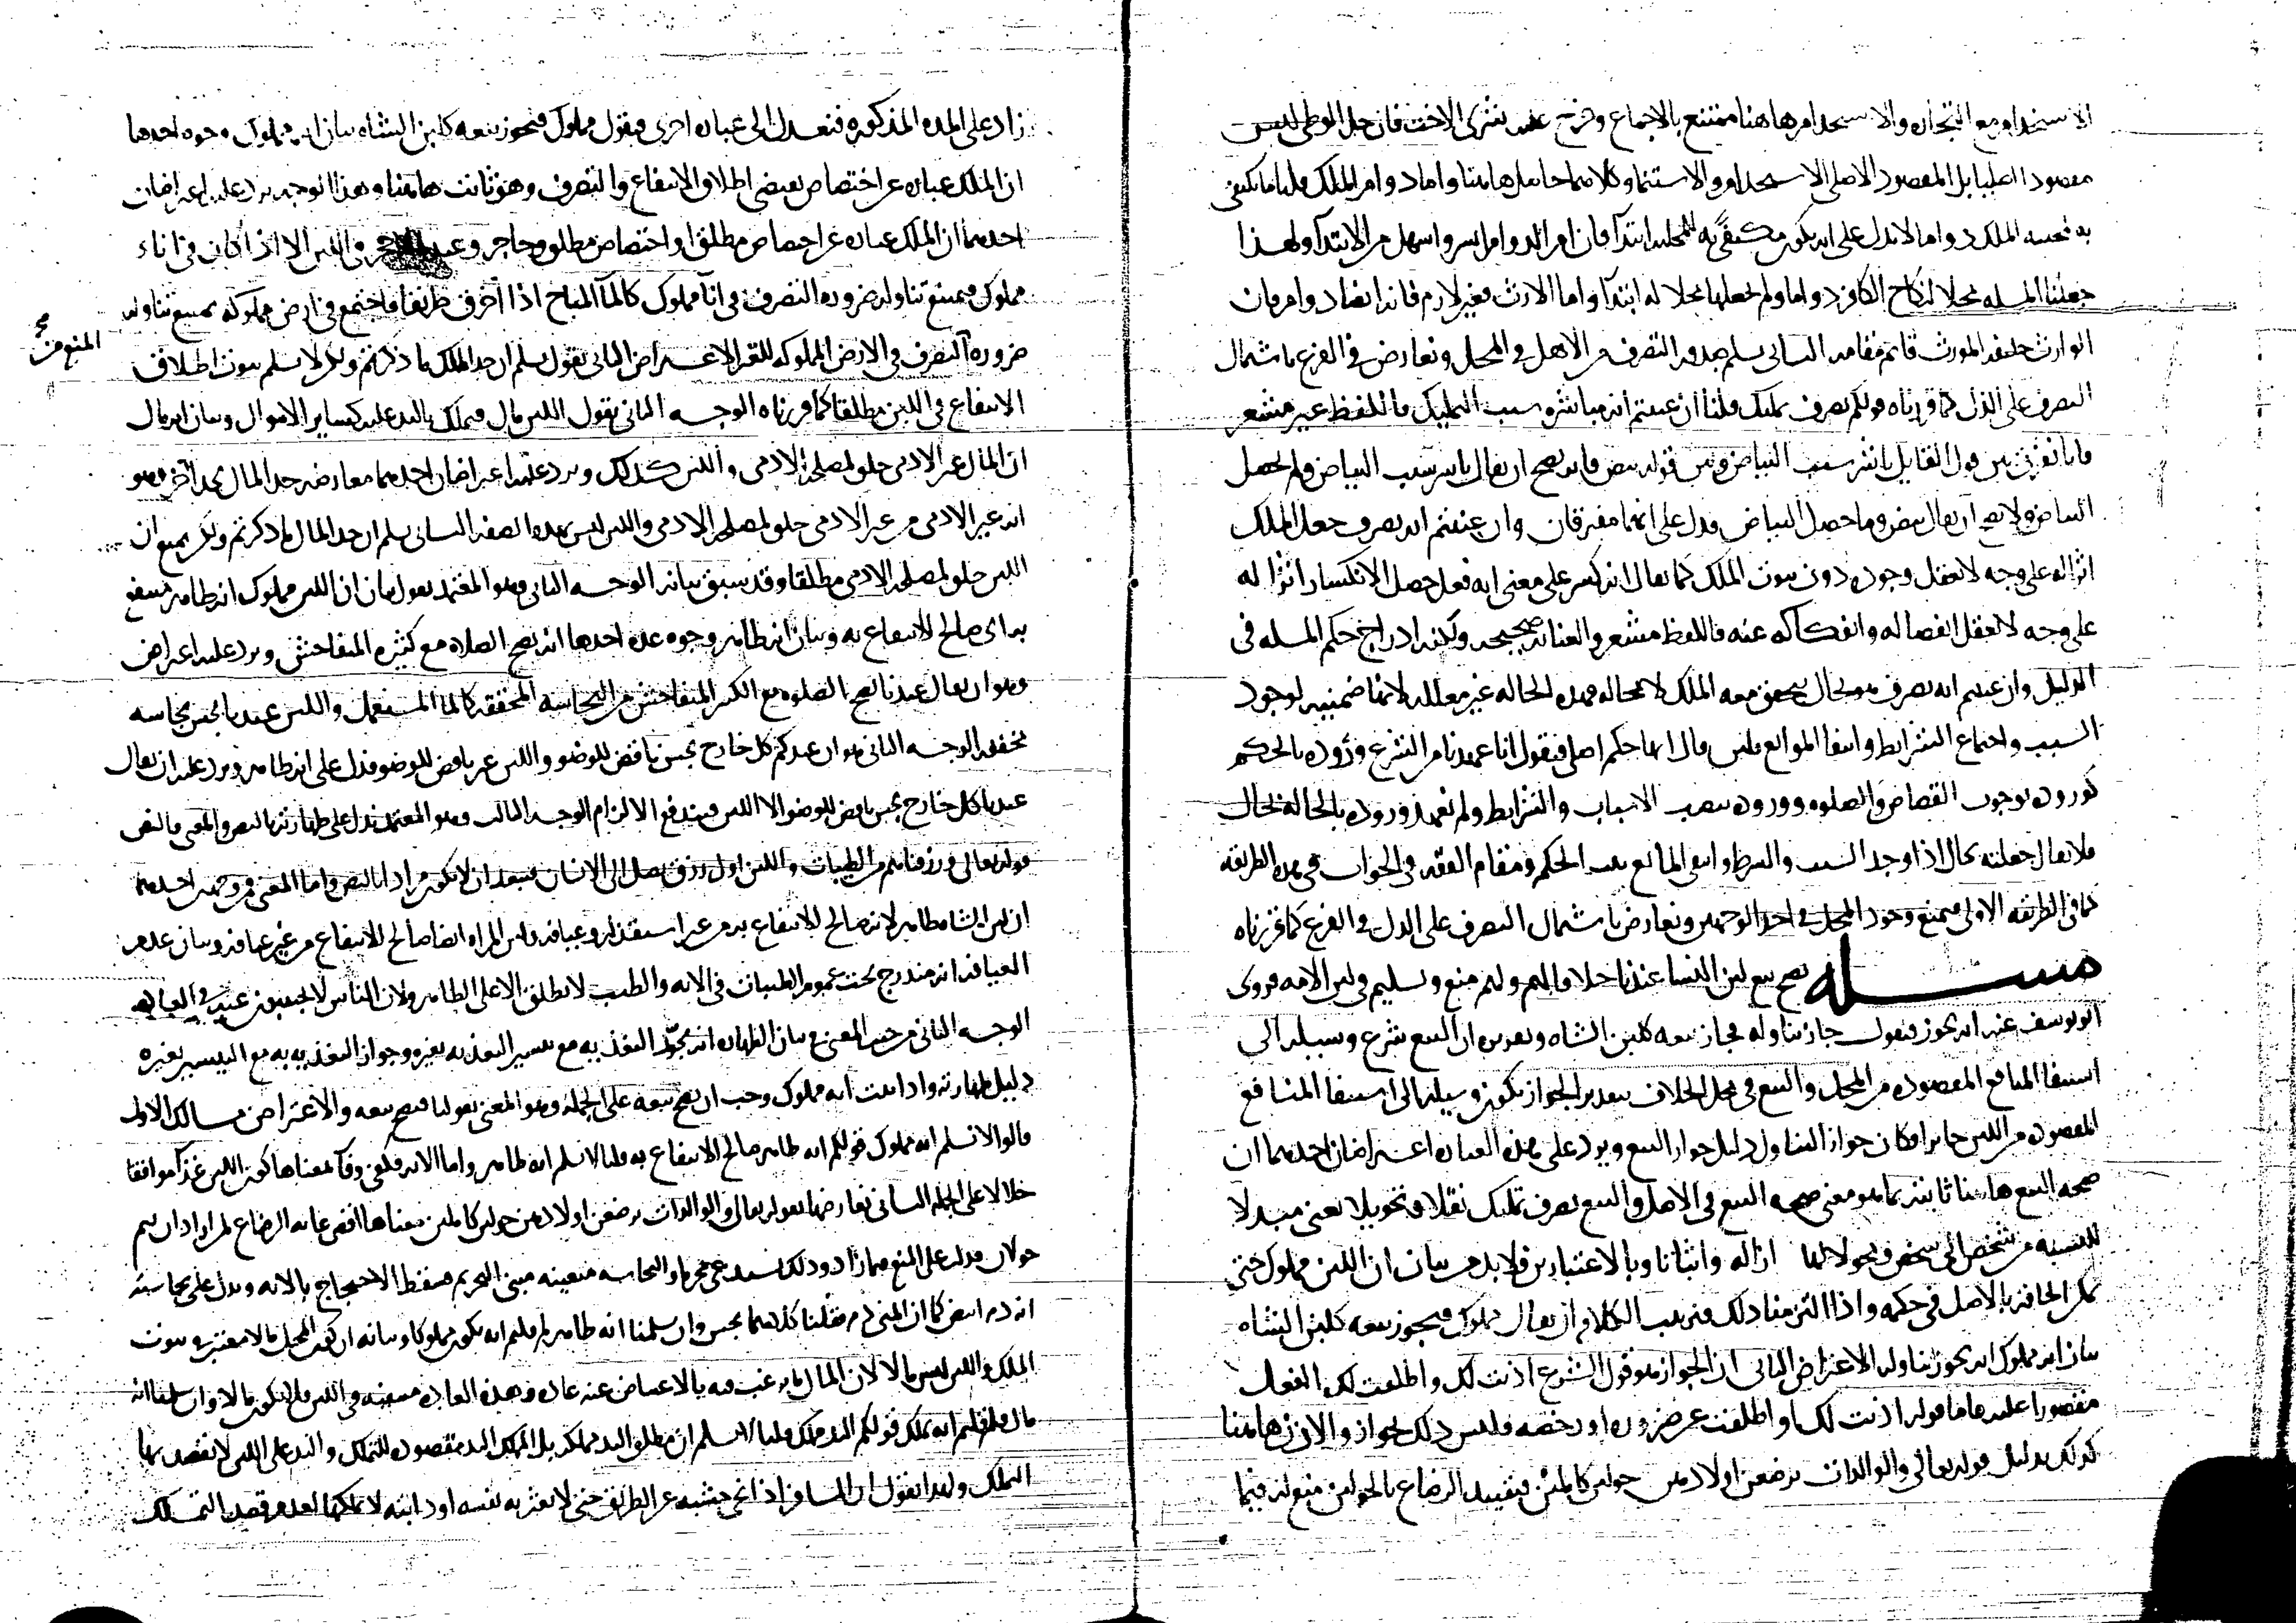 الاستخدام مع التجاره والاستخدام هاهنا ممتنع بالاجماع وخرج عليه شرى الاخت فان حل الوطى ليس
مقصودا اصليا بل المقصود الاصلى الاستخدام والاستنما وكلاهما حاصل هاهنا واما دوام الملك قلنا ما يكتفى
به الملك دواما لا يدل على انه يكون مكتفى به ابتدا فان امر الدوام ايسر واسهل من الابتدا ولهذا
جعلنا المسلمه محلا لنكاح الكافر دواما ولم نجعلها محلا له ابتدا واما الارث فغير لازم فانه ايضا دوام فان
الوارث خليفه المورث قائم مقامه الثانى سلم صدور التصرف من الاهل فى المحل ونعارض فى الفرع باشتمال
التصرف على الذل كما قررناه قولكم تصرف تمليك قلنا ان عنيتم انه مباشره سبب التمليك فاللفظ غير مشعر
فانا نفرق بين قول القايل باشر سبب البياض وبين قوله بيض فانه يصح ان يقال باشر سبب البياض ولم يحصل
البياض ولا يصح ان يقال بيض وما حصل البياض فدل على انهما مفترقان وان عنيتم انه تصرف جعل الملك
اثرا له على وجه لا يعقل وجوده دون ثبوت الملك كما يقال انه كسر على معنى انه فعل حصل الانكسار اثرا له
على وجه لا يعقل انفصاله وانفكاكه عنه فاللفظ مشعر والعنايه صحيحه ولكنه ادراج حكم المسله فى
الدليل وان عنيتم انه تصرف هو بحال يتحقق معه الملك لا محاله فهذه الحاله غير معلله لانها ضمنيه لوجود
السبب واجتماع الشرايط وانتفا الموانع فليس مال انها حكم اصلى فنقول انا عهدنا من الشرع وروده بالحكم
كوروده بوجوب القصاص والصلوه ووروده بنصب الاسباب والشرايط ولم نعهد وروده بالحاله بحال
فلا يقال جعلته بحال اذا وجد السبب والشرط وانتفى المانع يثبت الحكم ومقام الفقه فى الجواب فى هذه الطريقه
كما فى الطريقه الاولى فنمنع وجود المحل فى احد الوجهين ونعارض باشتمال التصرف على الذل فى الفرع كما قررناه
مسله يصح بيع لبن النسا عندنا خلافا لهم ولهم منع وتسليم فى لبن الامه فروى
ابو يوسف عنه انه يجوز فنقول جاز تناوله فجاز بيعه كلبن الشاه وتقريره ان البيع شرع وسيله الى
استيفا المنافع المقصوده من المحل والبيع فى محل الخلاف بتقدير الجواز يكون وسيله الى استيفا المنافع
المقصوده من اللبن جايزا فكان جواز التناول دليل جواز البيع ويرد على هذه العباره اعتراضان احدهما ان
صحه البيع هاهنا ثابته بما هو معنى صحه البيع فى الاصل والبيع تصرف تمليك نقلا وتحويلا يعنى مبدلا
للنسبه من شخص الى شخص وتحولا لها ازاله واثباتا وبالاعتبارين فلا بد من بيان ان اللبن مملوك حتى
يمكن الحاقه بالاصل فى حكمه واذا التزمنا ذلك فترتيب الكلام ان يقال مملوك فيجوز بيعه كلبن الشاه
بيان انه مملوك انه يجوز تناوله الاعتراض الثانى ان الجواز هو قول الشرع اذنت لك واطلقت لك الفعل
مقصورا عليه فاما قوله اذنت لك او اطلقت عن ضروره او رخصه فليس ذلك بجواز والاذن هاهنا
كذلك بدليل قوله تعالى والوالدات يرضعن اولادهن حولين كاملين فتقييد الرضاع بالحولين منع له فيما
زاد على المده المذكوره فنعدل الى عباره اخرى فنقول مملوك فيجوز بيعه كلبن الشاه بيان انه مملوك وجوه احدها
ان الملك عباره عن اختصاص يقتضى اطلاق الانتفاع والتصرف وهو ثابت هاهنا وهذا الوجه يرد عليه اعتراضان
احدهما ان الملك عباره عن اختصاص مطلق او اختصاص مطلق وحاجر فى اللبن الا اذا كان فى اناء
مملوك فيمتنع تناوله ضروره التصرف فى انآ مملوك كالمآ المباح اذا اخرق طريقا فاجتمع فى ارض مملوكه يمتنع تناوله
المنع من
ضروره التصرف فى الارض المملوكه للغير الاعتراض الثانى نقول سلم ان حد الملك ما ذكرتم ولكن لا نسلم ثبوت اطلاق
الانتفاع فى اللبن مطلقا كما قررناه الوجه الثانى نقول اللبن مال فيملك باليد عليه كساير الاموال وبيان انه مال
ان المال غير الادمى خلق لمصلحه الادمى واللبن كذلك ويرد عليه اعتراضان احدهما معارضه حد المال بحد آخر وهو
انه غير الادمى من غير الادمى خلق لمصلحه الادمى واللبن ليس بهذه الصفه الثانى سلم ان حد المال ما ذكرتم ولكن نمنع ان
اللبن خلق لمصلحه الادمى مطلقا وقد سبق بيانه الوجه الثانى وهو المعتمد نقول بيان ان اللبن مملوك انه طاهر منتفع
به اى صالح للانتفاع به وبيان انه طاهر وجوه عده احدها انه تصح الصلاه مع كثيره المتفاحش ويرد عليه اعتراض
وهو ان يقال عندنا تصح الصلوه مع الكثير المتفاحش من النجاسه المخففه كالما المستعمل واللبن عندنا نجس نجاسه
مخففه الوجه الثانى هو ان عندكم كل خارج نجس ناقض للوضو واللبن غير ناقض للوضو فدل على انه طاهر ويرد عليه ان يقال
عندنا كل خارج نجس ناقض للوضو الا اللبن فيندفع الالزام الوجه الثالث وهو المعتمد ندل على طهارته بالنص والمعنى فالنص
قوله تعالى ورزقناهم من الطيبات واللبن اول رزق يصل الى الانسان فيبعد ان لا يكون مرادا بالنص واما المعنى فمن وجهين احدهما
ان لبن الشاه طاهر لانه صالح للانتفاع به من غير استقذار وعيافه ولبن المراه ايضا صالح للانتفاع من غير عيافه وبيان عدم
العيافه انه مندرج تحت عموم الطيبات فى الايه والطيب لا يطلق الا على الطاهر ولان الناس لا يجتنبون عنه فى العاده
الوجه الثانى من حيث المعنى فى بيان الطهاره انه يجوز التغذيه به مع تيسير التغذيه بغيره وجواز التغذيه به مع التيسير بغيره
دليل طهارته واذا ثبت انه مملوك وجب ان يصح بيعه على الجمله وهو المعنى بقولنا فيصح بيعه والاعتراض مسالك الاول
قالوا لا نسلم انه مملوك قولكم انه طاهر صالح للانتفاع به قلنا لا نسلم انه طاهر واما الايه معناها كون اللبن غذآ موافقا
حلالا على الجمله الثانى نعارضها بقوله تعالى والوالدات يرضعن اولادهن حولين كاملين معناها اقصى غايه الرضاع لمن اراد ان يتم
حولان فدل على المنع فيما زاد وذلك يستدعى محرما والنجاسه متعينه مبنى التحريم فسقط الاحتجاج بالايه وندل على نجاسته
انه دم ابيض كما ان المنى دم فقلنا كلاهما نجس وان سلمنا انه طاهر لم قلتم انه يكون مملوكا وبيانه ان كون المحل مالا معتبر فى ثبوت
الملك واللبن ليس مالا لان المال ما يرغب فيه بالاعتياض عنه عاده وهذه العاده منتفيه فى اللبن فلا يكون مالا وان سلمنا انه
مال فلم قلتم انه يملك قولكم اليد مملك قلنا لا نسلم ان مطلق اليد مملكه بل المملك اليد مقصوده للتملك واليد على اللبن لا يقصد بها
التملك ولهذا نقول ان المسافر اذا نحى خشبه عن الطريق حتى لا يعثر به نفسه او دابته لا يملكها لعدم قصد التملك